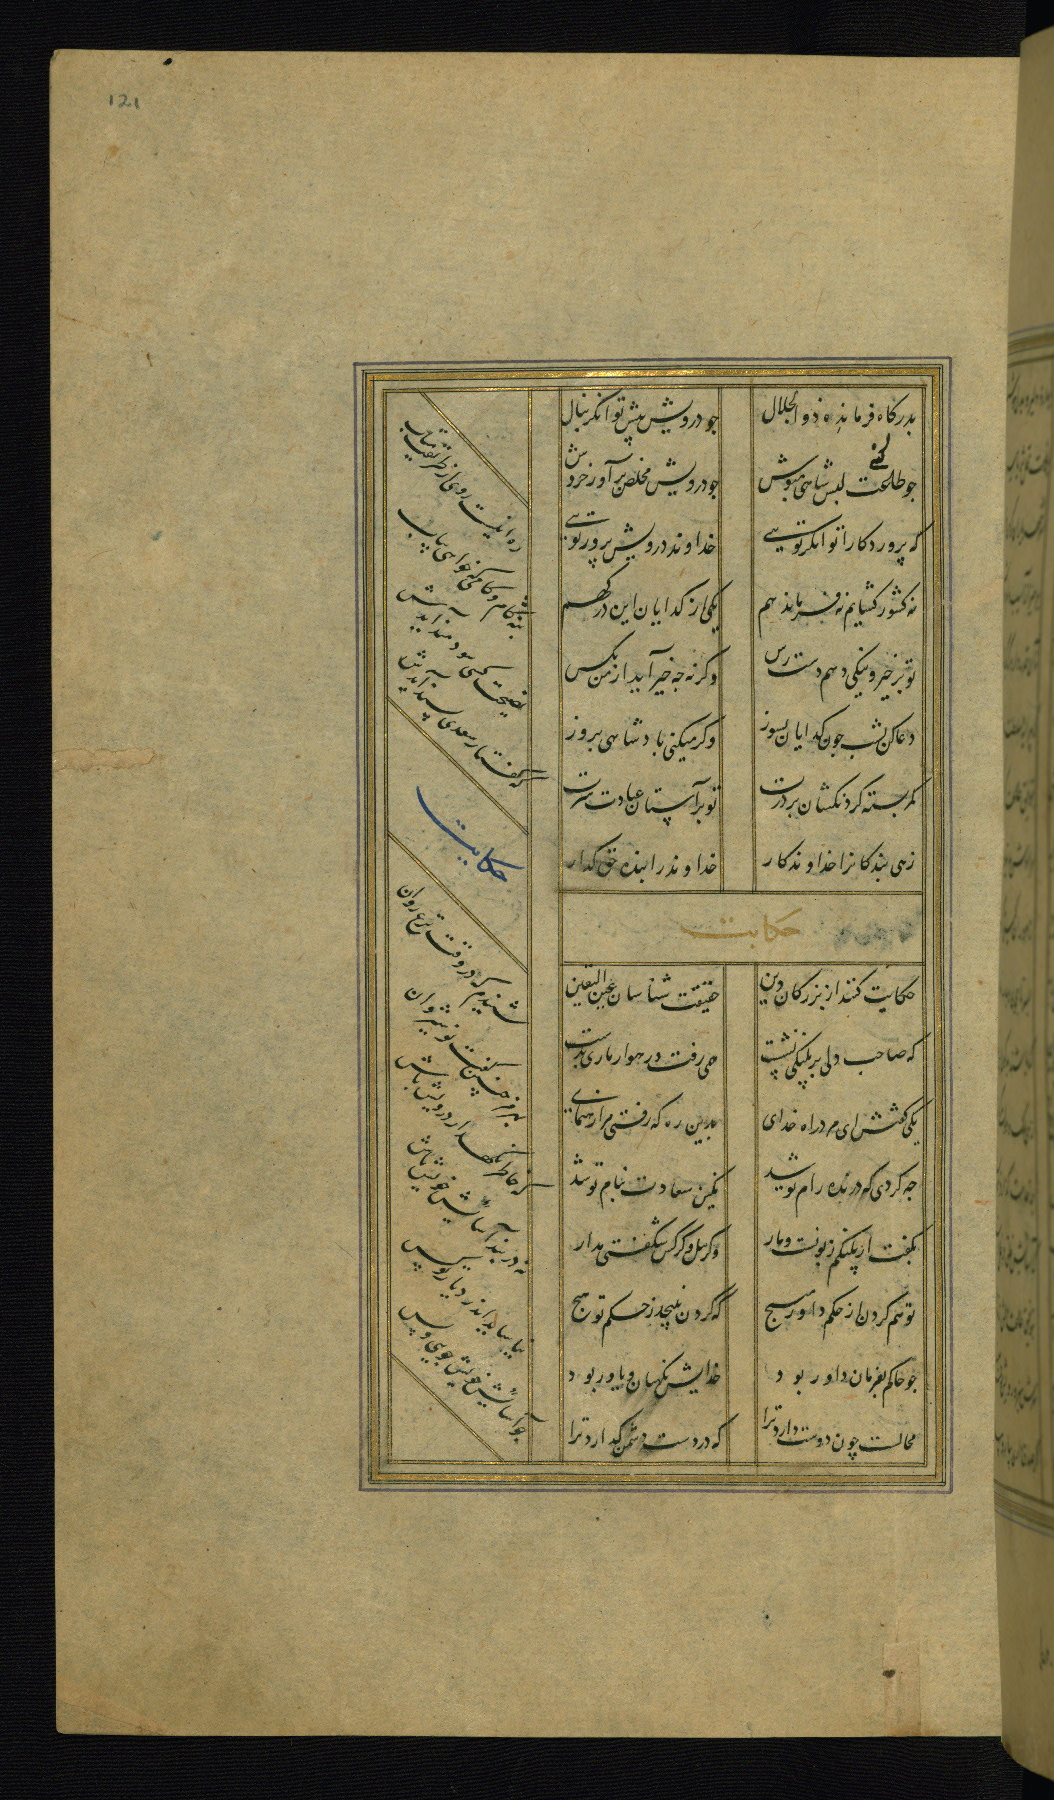 121
بدرکاه فرمانده ذوالجلال
جو درویش پیش توانکر بنال
جو طاعت کنی لبس شاهی مپوش
جو درویش مخلص برآور خروش
که پروردکارا توانکر تویی
خداوند درویش پرور تویی
نه کشور کشایم نه فرماندهم
یکی از کدایان این درکهم
تو بر خیر و نیکی دهم دست رس
وکرنه جه خیر آید از من بکس
دعا کن بشب جون کدایان بسوز
وکر میکنی بادشاهی بروز
کمر بسته کردنکشان بر درت
تو بر آستان عبادت سرت
زهی بندکانرا خداوندکار
خداوند را بنده حق کذار
حکایت
حکایت کنند از بزرکان دین
حقیقت شناسان عین الیقین
که صاحب دلی بر پلنکی نشست
همی رفت رهوار ماری بدست
یکی کفتش ای مرد راه خدای
بدین ره که رفتی مرا ره نمای
جه کردی که درنده رام تو شد
نکین سعادت بنام تو شد
بکفت ار پلنکم زبونست و مار
وکر پیل و کرکس شکفتی مدار
تو هم کردن از حکم داور مپیج
که کردن نپیجد ز حکم تو هیج
جو حاکم بفرمان داور بود
خدایش نکهبان و یاور بود
محالست جون دوست دارد ترا
که در دست دشمن کذارد ترا
ره اینست روی از طریقت متاب
بنه کام و کامی که خواهی بیاب
نصیحت کسی سودمند آیدش
که کفتار سعدی پسند آیدش
حکایت
شنیدم که در وقت نزع روان
بهرمز جنین کفت نوشیروان
که خاطر نکهدار درویش باش
نه در بند آسایش خویش باش
نیاساید اندر دیار تو کس
جو آسایش خویش جویی و بس